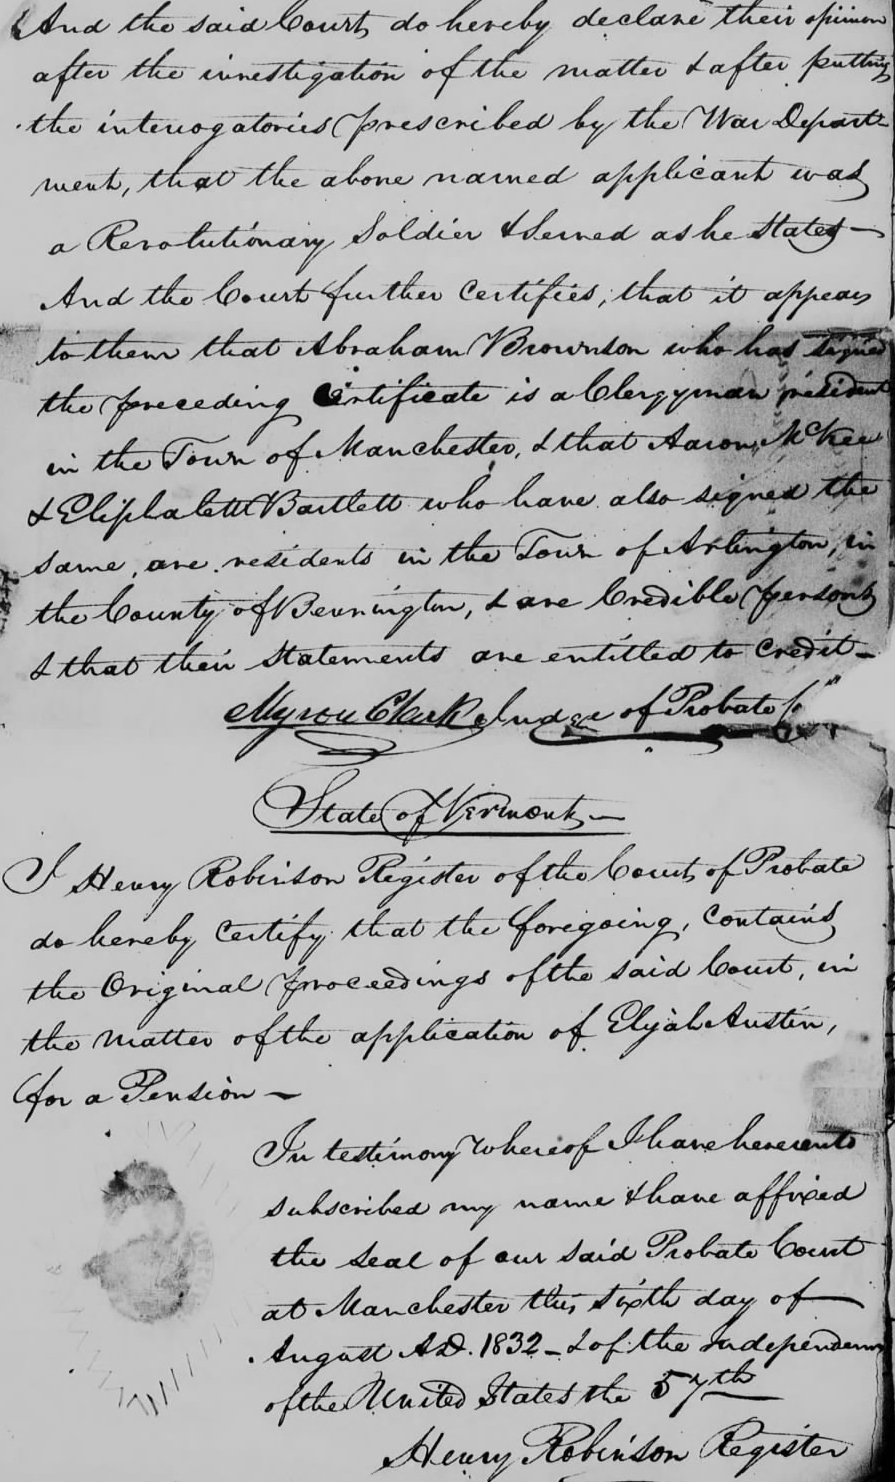 And the said Court do hereby declare their opinion
after the investigation of the matter & after putting
the interrogatories prescribed by the War Depart-
ment, that the above named applicant was
a Revolutionary Soldier & Served as he States —
And the Court further Certifies, that it appears
to them that Abraham Brownson who has signed
the preceding Certificate is a Clergyman resident
in the Town of Manchester, & that Aaron McKee
& Eliphalett Bartlett who have also signed the
same, are residents in the Town of Arlington, in
the County of Bennington, & are Credible persons
& that their statements are entitled to credit —
Myron Clark Judge of Probate Ct
State of Vermont —
I Henry Robinson Register of the Court of Probate
do hereby Certify that the foregoing, Contains
the Original proceedings of the said Court, in
the matter of the application of Elijah Austin,
for a Pension —
In testimony Whereof I have hereunto
subscribed my name & have affixed
the seal of our said Probate Court
at Manchester this, sixth day of
August AD. 1832 — & of the independence
of the United States the 57th
Henry Robinson Register